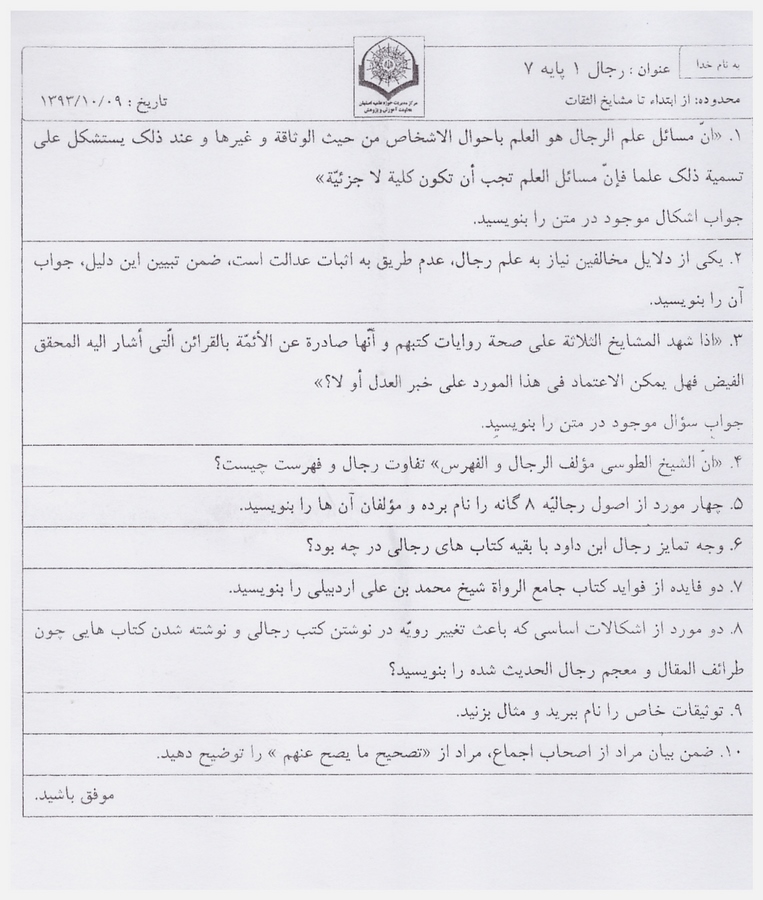 به نام خدا
عنوان : رجال ۱ پایه ۷
مرکز مدیریت حوزه علمیه اصفهان
معاونت آموزش و پژوهش
محدوده: از ابتداء تا مشایخ الثقات
تاریخ : ۱۳۹۳/۱۰/۰۹
۱. «انّ مسائل علم الرجال هو العلم باحوال الاشخاص من حیث الوثاقة و غیرها و عند ذلک یستشکل علی
تسمیة ذلک علما فإنّ مسائل العلم تجب أن تکون کلیة لا جزئیّة»
جواب اشکال موجود در متن را بنویسید.
۲. یکی از دلایل مخالفین نیاز به علم رجال، عدم طریق به اثبات عدالت است، ضمن تبیین این دلیل، جواب
آن را بنویسید.
۳. «اذا شهد المشایخ الثلاثة علی صحة روایات کتبهم و أنّها صادرة عن الأئمّة بالقرائن الّتی أشار الیه المحقق
الفیض فهل یمکن الاعتماد فی هذا المورد علی خبر العدل أو لا؟»
جواب سؤال موجود در متن را بنویسید.
۴. «انّ الشیخ الطوسی مؤلف الرجال و الفهرس» تفاوت رجال و فهرست چیست؟
۵. چهار مورد از اصول رجالیّه ۸ گانه را نام برده و مؤلفان آن ها را بنویسید.
۶. وجه تمایز رجال ابن داود با بقیه کتاب های رجالی در چه بود؟
۷. دو فایده از فواید کتاب جامع الرواة شیخ محمد بن علی اردبیلی را بنویسید.
۸. دو مورد از اشکالات اساسی که باعث تغییر رویّه در نوشتن کتب رجالی و نوشته شدن کتاب هایی چون
طرائف المقال و معجم رجال الحدیث شده را بنویسید؟
۹. توثیقات خاص را نام ببرید و مثال بزنید.
۱۰. ضمن بیان مراد از اصحاب اجماع، مراد از «تصحیح ما یصح عنهم » را توضیح دهید.
موفق باشید.